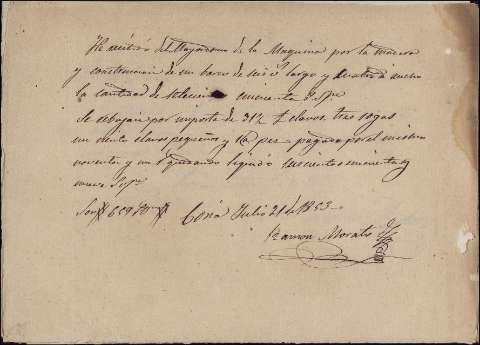 He recibido del Mayordomo de la Maquina por la madera
y construccion de un barco de seis v. largo y cuatro d ancho
la cantidad de setecientos cincuenta p.s f.s
Se rebajan por importe de 31½ # clavos tres sogas
un ciento clavos pequeños y pagado por el mismo
noventa y un quedando liquido seiscientos cincuenta y
nueve p.s f.s
Son $ 659
Julio 21 de 1853
Ramon Morales